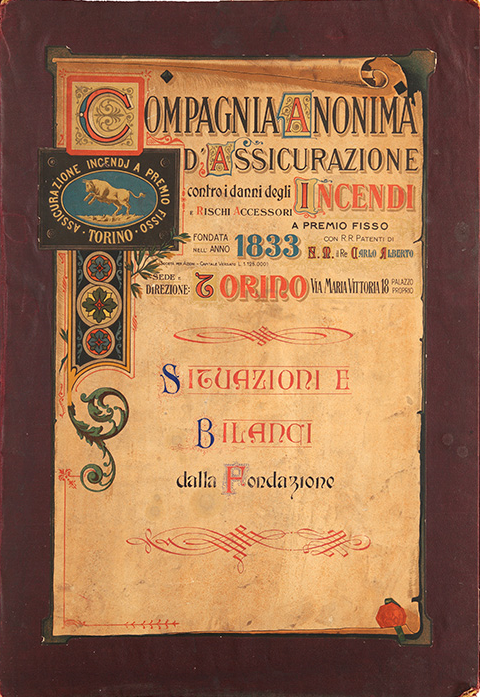 COMPAGNIA ANONIMA
D'ASSICURAZIONE
contro i danni degli INCENDI
E RISCHI ACCESSORI
A PREMIO FISSO
FONDATA NELL' ANNO 1833 CON R.R. PATENTI DI S. M. il Re CARLO ALBERTO
SOCIETÀ PER AZIONI - CAPITALE VERSATO L. 1.125.000
SEDE E DIREZIONE: TORINO VIA MARIA VITTORIA 18 PALAZZO PROPRIO
ASSICURAZIONE INCENDJ A PREMIO FISSO
· TORINO ·
SITUAZIONI E
BILANCI
dalla Fondazione